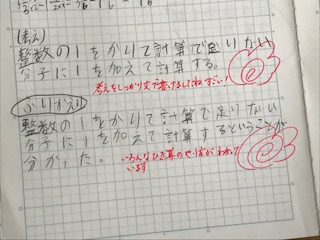 (考え)
整数の1をかりて計算で足りない
分子に1を加えて計算する。
考えをしっかり文で書けましたね すごい!
ふりかえり
整数の1をかりて計算で足りない
分子に1を加えて計算するということが
分かった。
いろんなひき算のやり方がわかって
います